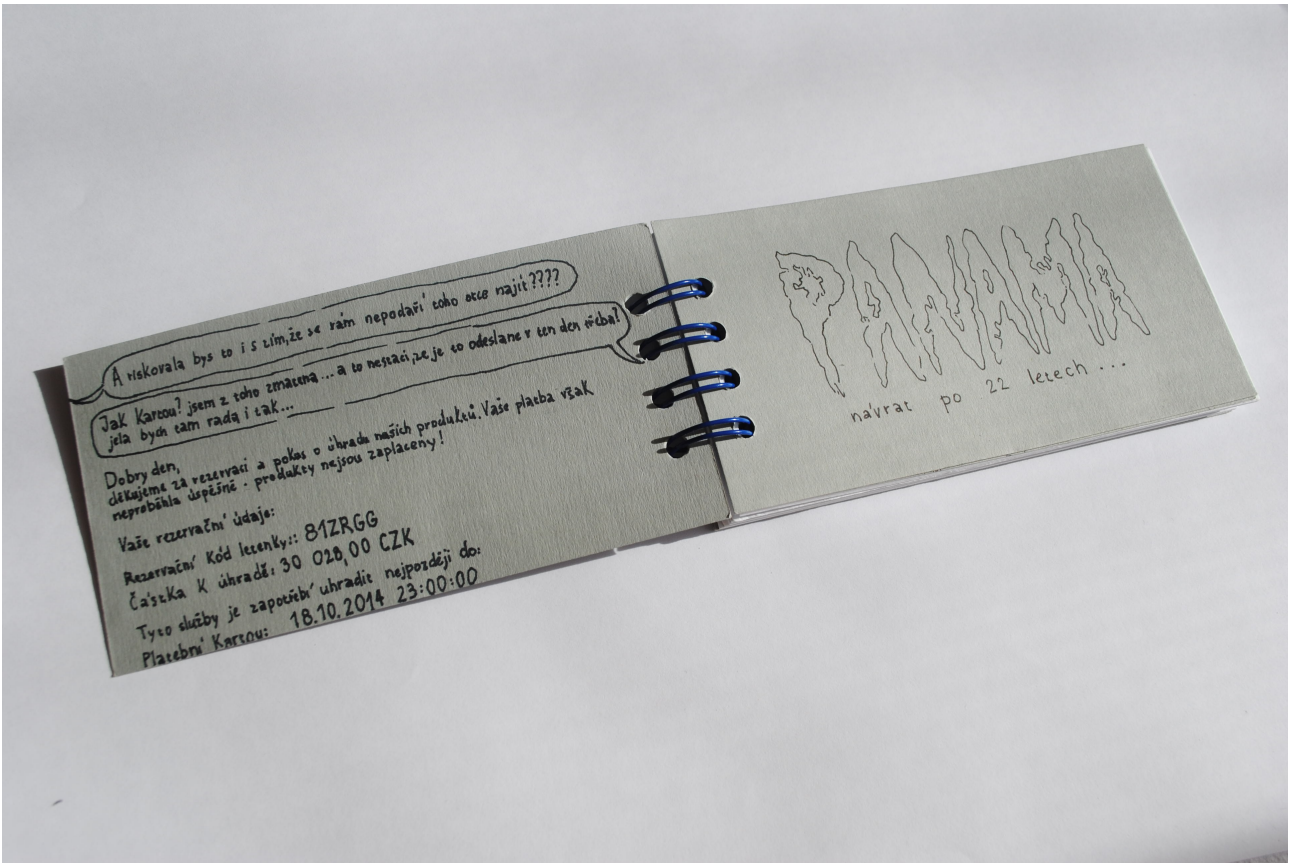 A riskovala bys to i s tím, že se vám nepodaří toho otce najít????
Jak Kartou? jsem z toho zmatená... a to nestací, že je to odeslane v ten den třeba?
jela bych tam radą i tak...
Dobry den,
děkujeme za rezervaci a pokus o úhradu našich produktů. Vaše platba však
neproběhla úspěšně - produkty nejsou zaplaceny!
Vaše rezervační údaje:
Rezervační Kód letenky:: 81ZRGG
Částka K úhradě: 30 028,00 CZK
Tyto služby je zapotřebí uhradit nejpozději do:
Platební Kartou: 18.10.2014 23:00:00
PANAMA
návrat po 22 letech ...